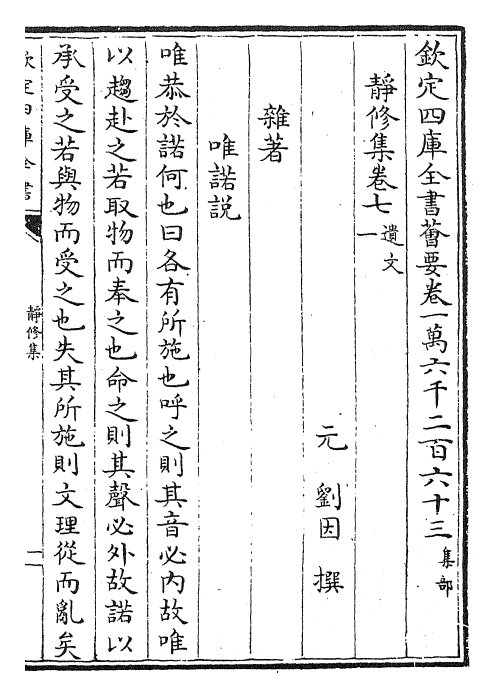 欽定四庫全書薈要卷一萬六千二百六十三集部
靜修集卷七 遺文一
元 劉因 撰
雜著
唯諾說
唯恭於諾何也曰各有所施也呼之則其音必內故唯
以趨赴之若取物而奉之也命之則其聲必外故諾以
承受之若與物而受之也失其所施則文理從而亂矣
欽定四庫全書
靜修集
一